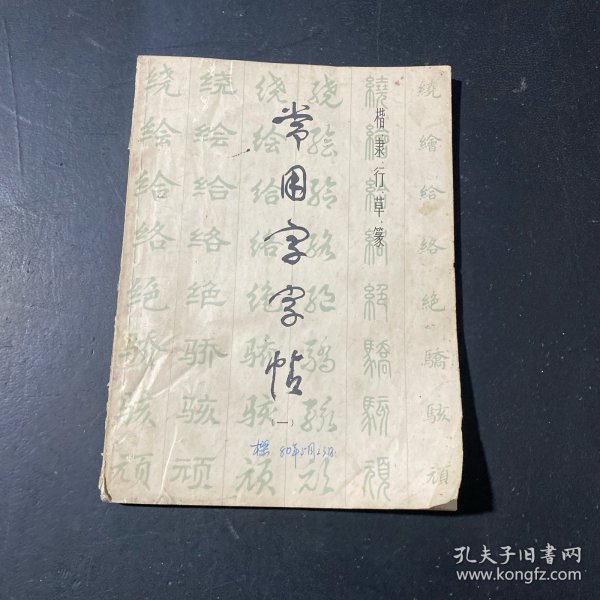 繞繪給絡絶驕駭頑
楷·隶·行·草·篆
常用字字帖
(一)
80年5月23日
绕绘给络绝骄骇顽
绕绘给络绝骄骇顽
绕绘给络绝骄骇顽
绕绘给络绝骄骇顽
孔夫子旧书网
www.kongfz.com